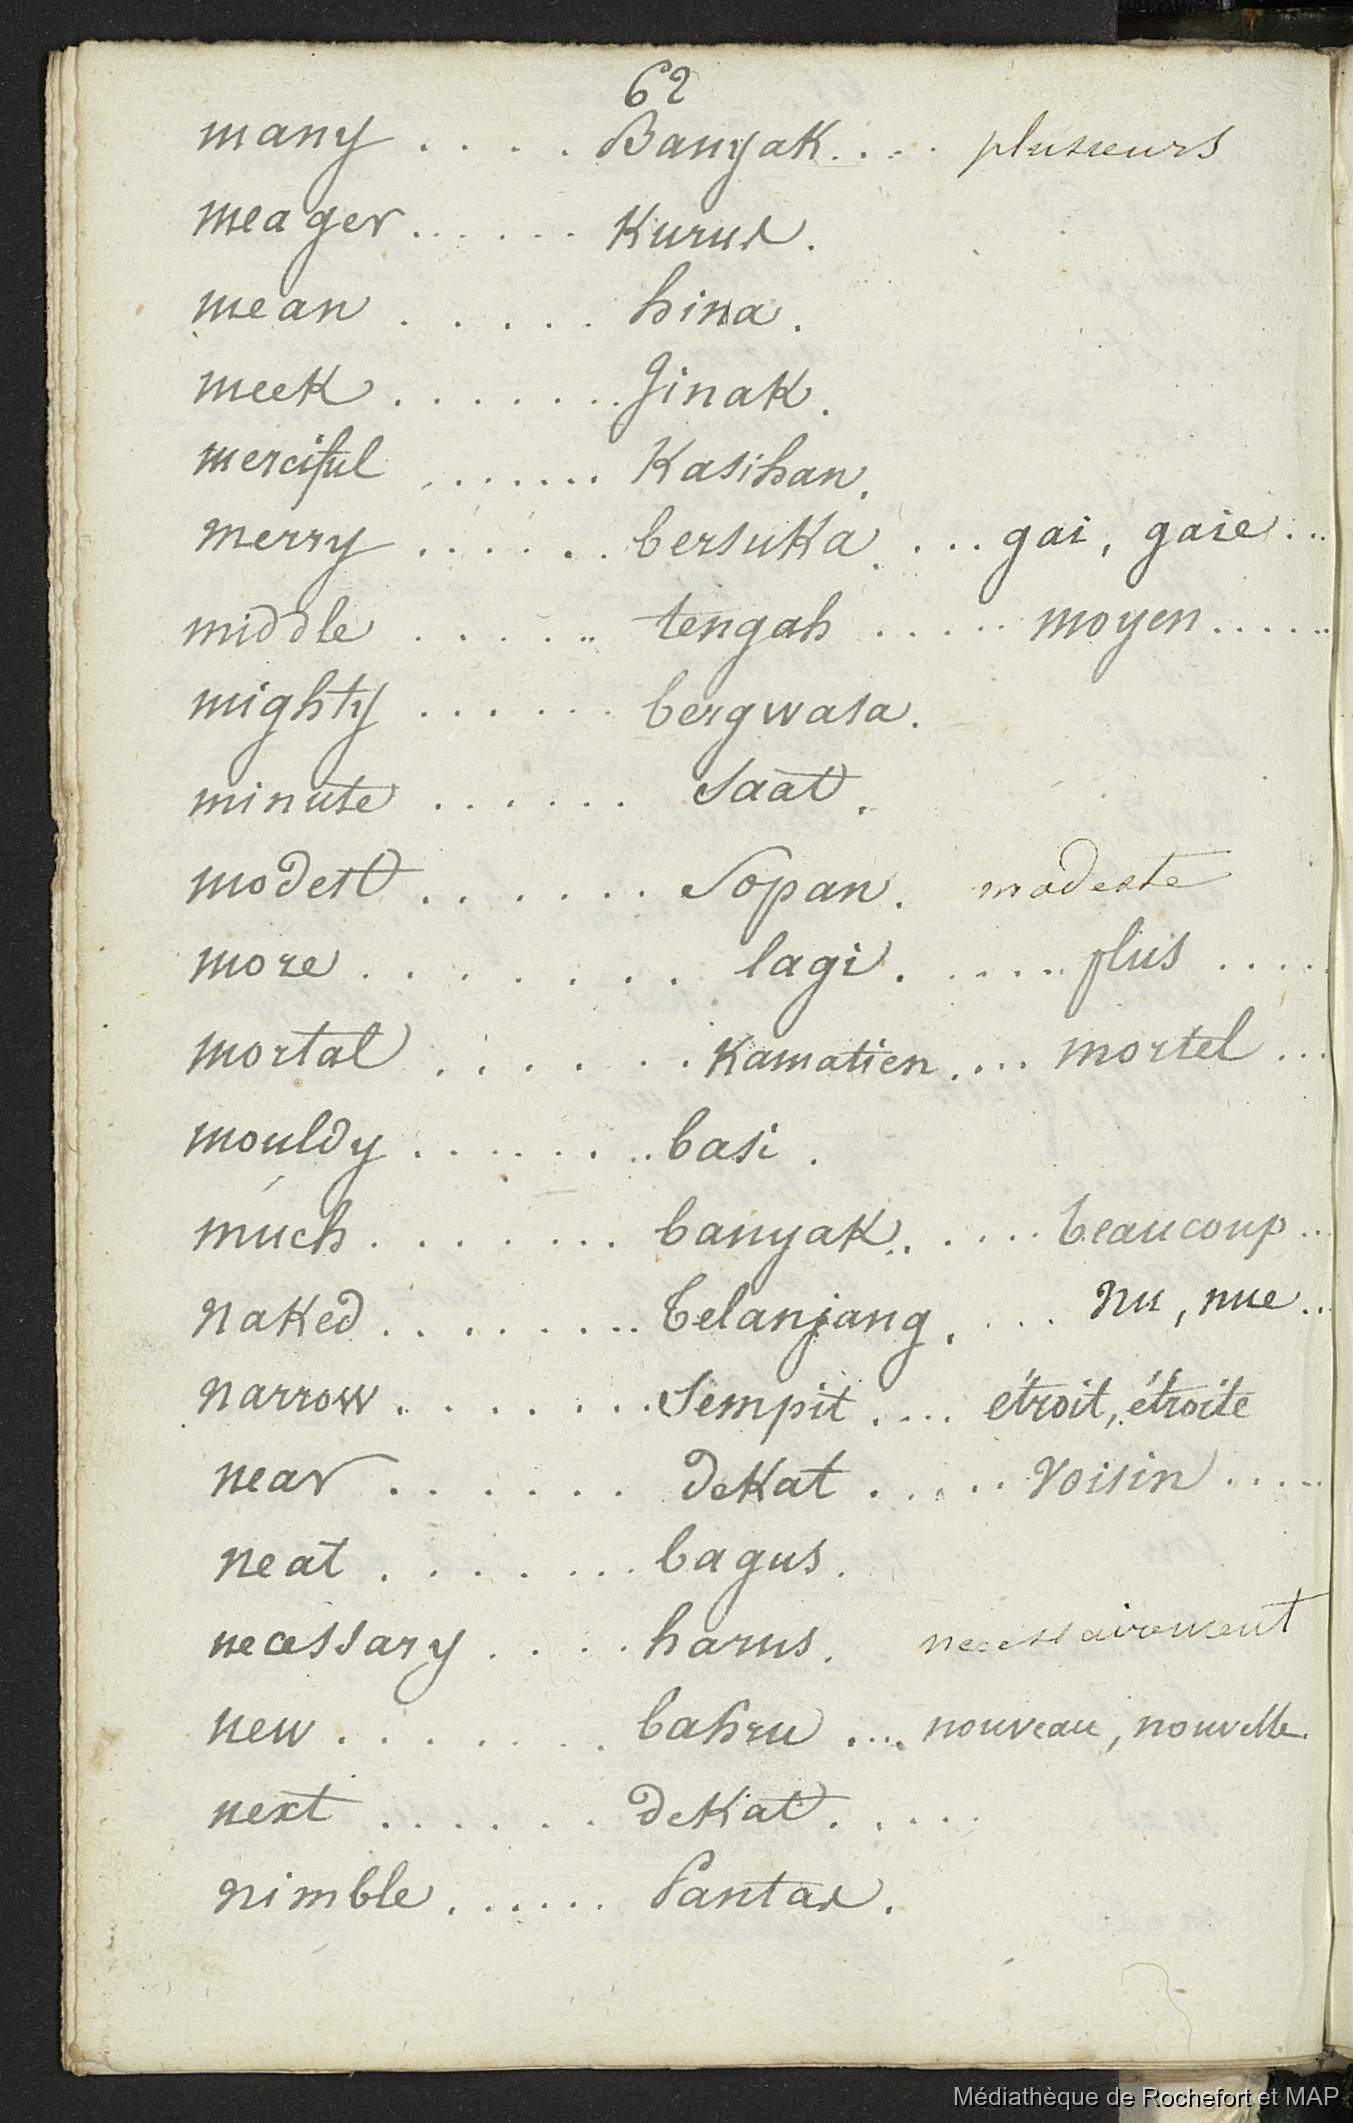 62
many . . . . Banyak. . . . plusieurs
meager. . . . . . Kurus.
mean . . . . . hina.
meek . . . . . . . Jinak.
merciful . . . . . . . Kasihan.
merry . . . . . . bersuka. . . . gai, gaie . . .
middle . . . . . . tengah . . . . . moyen. . . . .
mighty . . . . . . bergwasa.
minute . . . . . . Saat.
modest . . . . . . . Sopan. modeste
more . . . . . . . . lagi. . . . . . plus . . . . .
mortal . . . . . . . Kamatien. . . . mortel . . .
mouldy . . . . . . . basi.
much . . . . . . . . banyak. . . . . . beaucoup . .
naked . . . . . . . . telanjang. . . . nu, nue . .
narrow. . . . . . . . Sempit . . . . étroit, étroite
near . . . . . . . dekat . . . . . voisin . . . . .
neat . . . . . . . . bagus.
necessary . . . . harus. necessairement
new . . . . . . . . bahru . . . . nouveau, nouvelle.
next . . . . . . . dekat. . . . .
nimble. . . . . . . Pantas.
Médiathèque de Rochefort et MAP